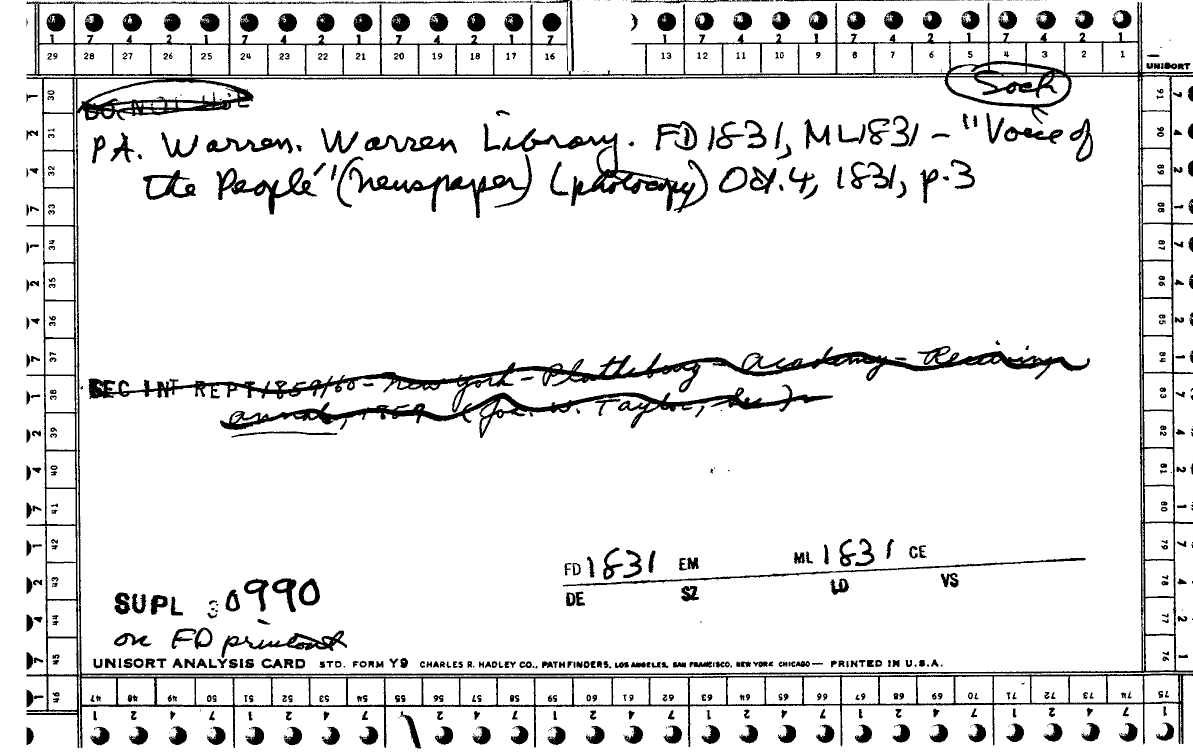 1 7 4 2 1 7 4 2 1 7 4 2 1 7 1 7 4 2 1 7 4 2 1 7 4 2 1
29 28 27 26 25 24 23 22 21 20 19 18 17 16 13 12 11 10 9 8 7 6 5 4 3 2 1
UNISORT
DO NOT USE
Soch
PA. Warren. Warren Library. FD 1831, ML1831 - "Voice of
the People" (newspaper) (photocopy) Oct. 4, 1831, p.3
SEC INT REPT 1859/60 - New York - Plattsburg - Academy - Receiving
annals, 1859 (Jos. W. Taylor, Sec)
FD 1831 EM ML 1831 CE
DE SZ LD VS
SUPL 30990
on FD printout
UNISORT ANALYSIS CARD STD. FORM Y9 CHARLES R. HADLEY CO., PATHFINDERS, LOS ANGELES, SAN FRANCISCO, NEW YORK CHICAGO — PRINTED IN U.S.A.
30 31 32 33 34 35 36 37 38 39 40 41 42 43 44 45 46
91 90 89 88 87 86 85 84 83 82 81 80 79 78 77 76
47 48 49 50 51 52 53 54 55 56 57 58 59 60 61 62 63 64 65 66 67 68 69 70 71 72 73 74 75